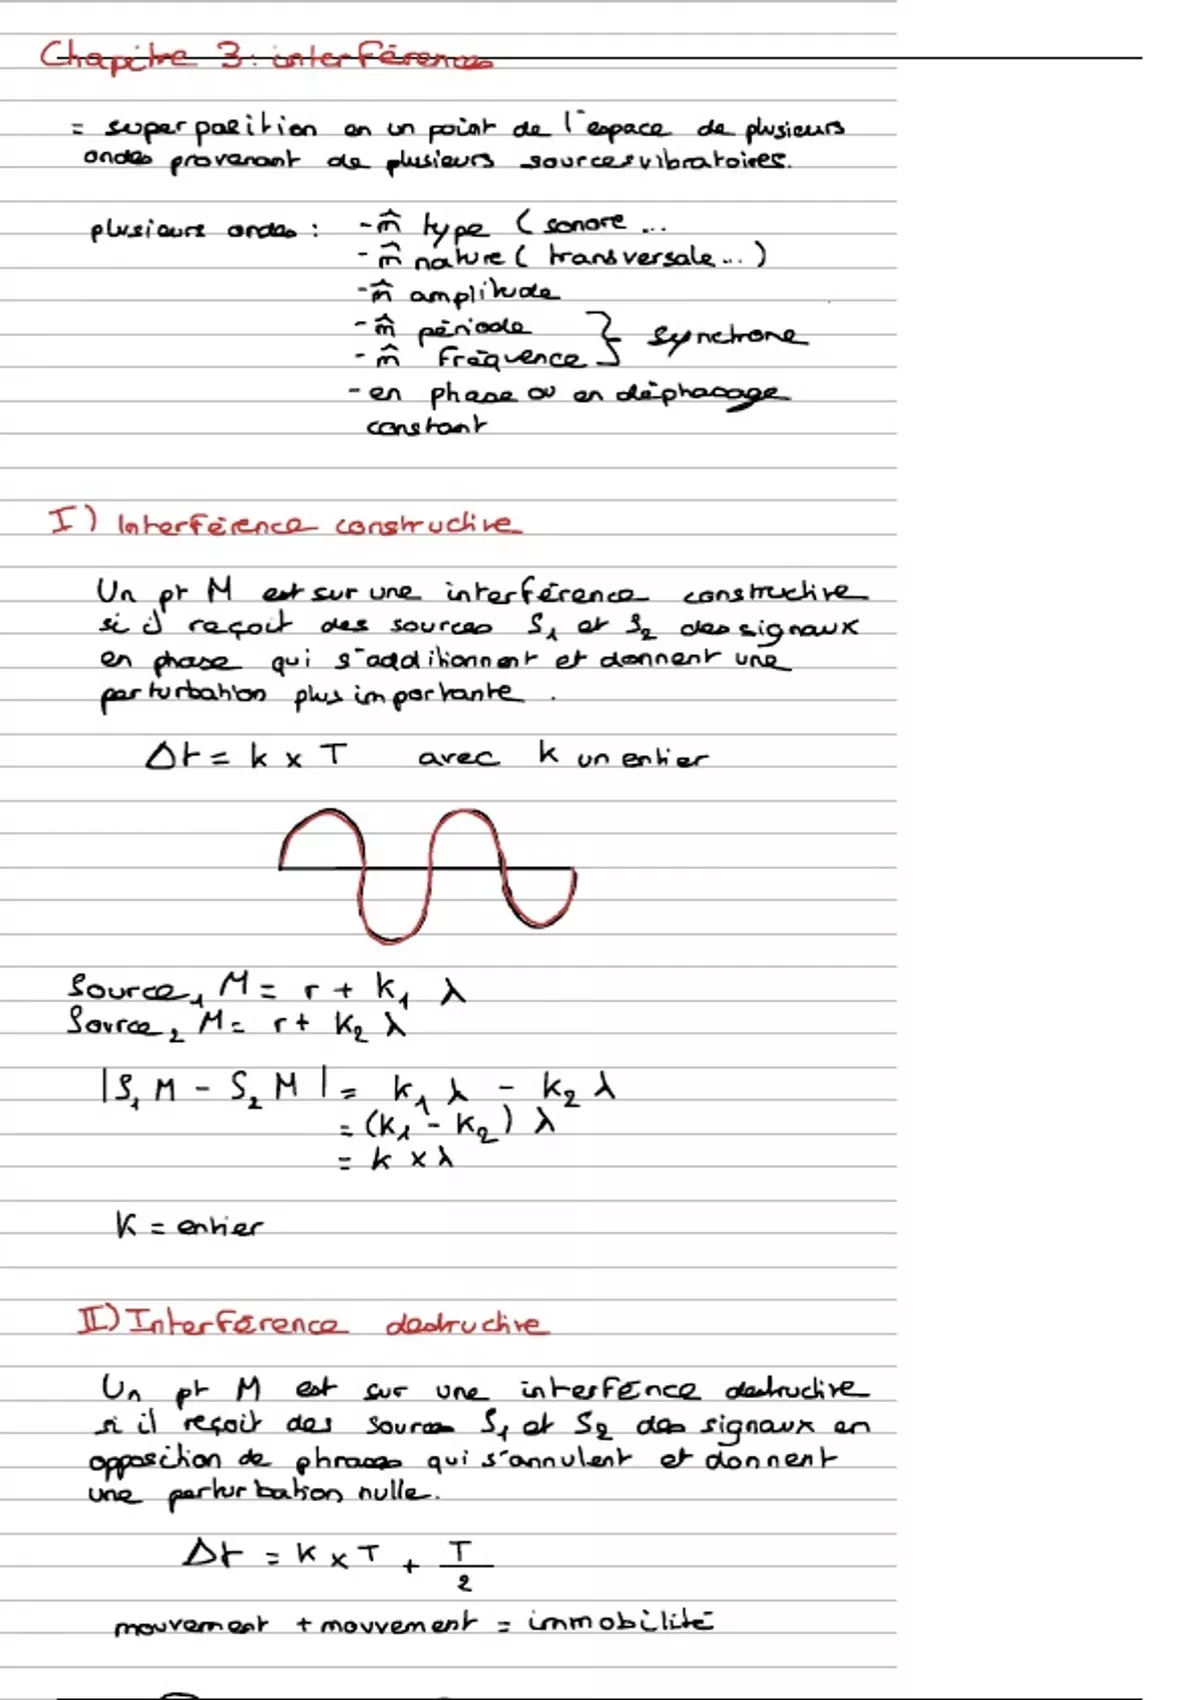 Chapitre 3: interférences
= superposition en un point de l'espace de plusieurs
ondes provenant de plusieurs sources vibratoires.
plusieurs ondes : - m̂ type ( sonore ...
- m̂ nature ( transversale ... )
- m̂ amplitude
- m̂ période
- m̂ fréquence } synchrone
- en phase ou en déphasage
constant
I) Interférence constructive
Un pt M est sur une interférence constructive
si il reçoit des sources S₁ et S₂ des signaux
en phase qui s'additionnent et donnent une
perturbation plus importante.
Δt = k x T avec k un entier
Source₁ M = r + k₁ λ
Source₂ M = r + k₂ λ
|S₁ M - S₂ M| = k₁ λ - k₂ λ
= (k₁ - k₂) λ
= k x λ
K = entier
II) Interférence destructive
Un pt M est sur une interfénce destructive
si il reçoit des sources S₁ et S₂ des signaux en
opposition de phrases qui s'annulent et donnent
une perturbation nulle.
Δt = K x T + T/2
mouvement + mouvement = immobilité